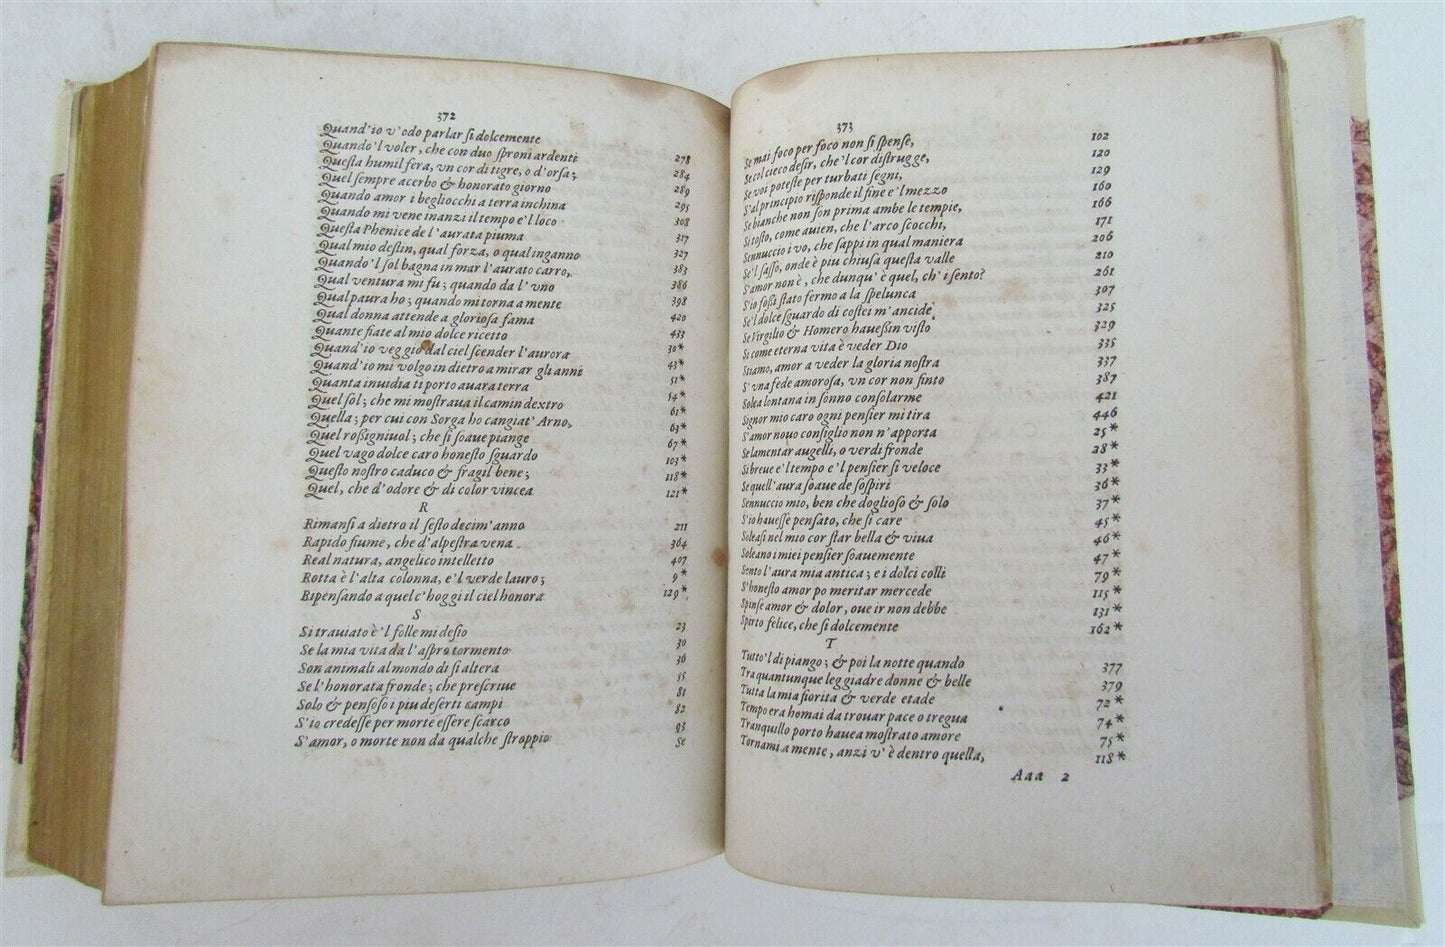 372
Quand'io v'odo parlar ſi dolcemente
Quando'l voler, che con duo ſproni ardenti 278
Queſta humil fera, vn cor di tigre, o d'orſa; 284
Quel ſempre acerbo & honorato giorno 289
Quando amor i begliocchi a terra inchina 295
Quando mi vene inanzi il tempo e'l loco 308
Queſta Phenice de l'aurata piuma 317
Qual mio deſtin, qual forza, o qual inganno 327
Quando'l ſol bagna in mar l'aurato carro, 383
Qual ventura mi fu; quando da l'vno 386
Qual paura ho; quando mi torna a mente 398
Qual donna attende a glorioſa fama 420
Quante fiate al mio dolce ricetto 433
Quand'io veggio dal ciel ſcender l'aurora 30*
Quand'io mi volgo in dietro a mirar gli anni 43*
Quanta inuidia ti porto auara terra 51*
Quel ſol; che mi moſtraua il camin dextro 54*
Quella; per cui con Sorga ho cangiat' Arno, 61*
Quel roßigniuol; che ſi ſoaue piange 63*
Quel vago dolce caro honeſto ſguardo 67*
Queſto noſtro caduco & fragil bene; 103*
Quel, che d'odore & di color vincea 118*
121*
R
Rimanſi a dietro il ſeſto decim'anno 211
Rapido fiume, che d'alpeſtra vena 364
Real natura, angelico intelletto 407
Rotta è l'alta colonna, e'l verde lauro; 9*
Ripenſando a quel c'hoggi il ciel honora 129*
S
Si trauiato è'l folle mi deſio 23
Se la mia vita da l'aſpro tormento 30
Son animali al mondo di ſi altera 36
Se l'honorata fronde; che preſcriue 55
Solo & penſoſo i piu deſerti campi 81
S'io credeſſe per morte eſſere ſcarco 82
S'amor, o morte non da qualche ſtroppio 93
Se
373
Se mai foco per foco non ſi ſpenſe, 102
Se col cieco deſir, che'l cor diſtrugge, 120
Se voi poteſte per turbati ſegni, 129
S'al principio riſponde il fine e'l mezzo 160
Se bianche non ſon prima ambe le tempie, 166
Si toſto, come auien, che l'arco ſcocchi, 171
Sennuccio i vo, che ſappi in qual maniera 206
Se'l ſaſſo, onde è piu chiuſa queſta valle 210
S'amor non è, che dunqu' è quel, ch' i ſento? 261
S'io foßi ſtato fermo a la ſpelunca 307
Se'l dolce ſguardo di coſtei m'ancide 325
Se Virgilio & Homero haueßin viſto 329
Si come eterna vita è veder Dio 335
Stiamo, amor a veder la gloria noſtra 337
S'vna fede amoroſa, vn cor non finto 387
Solea lontana in ſonno conſolarme 421
Signor mio caro ogni penſier mi tira 446
S'amor nouo conſiglio non n'apporta 25*
Se lamentar augelli, o verdi fronde 28*
Si breue e'l tempo e'l penſier ſi veloce 33*
Se quell'aura ſoaue de ſoſpiri 36*
Sennuccio mio, ben che doglioſo & ſolo 37*
S'io haueſſe penſato, che ſi care 45*
Soleaſi nel mio cor ſtar bella & viua 46*
Soleano i miei penſier ſoauemente 47*
Sento l'aura mia antica; e i dolci colli 79*
S'honeſto amor po meritar mercede 115*
Spinſe amor & dolor, oue ir non debbe 131*
Spirto felice, che ſi dolcemente 162*
T
Tutto'l di piango; & poi la notte quando 377
Tra quantunque leggiadre donne & belle 379
Tutta la mia fiorita & verde etade 72*
Tempo era homai da trouar pace o tregua 74*
Tranquillo porto hauea moſtrato amore 75*
Tornami a mente, anzi v'è dentro quella, 118*
Aaa 2